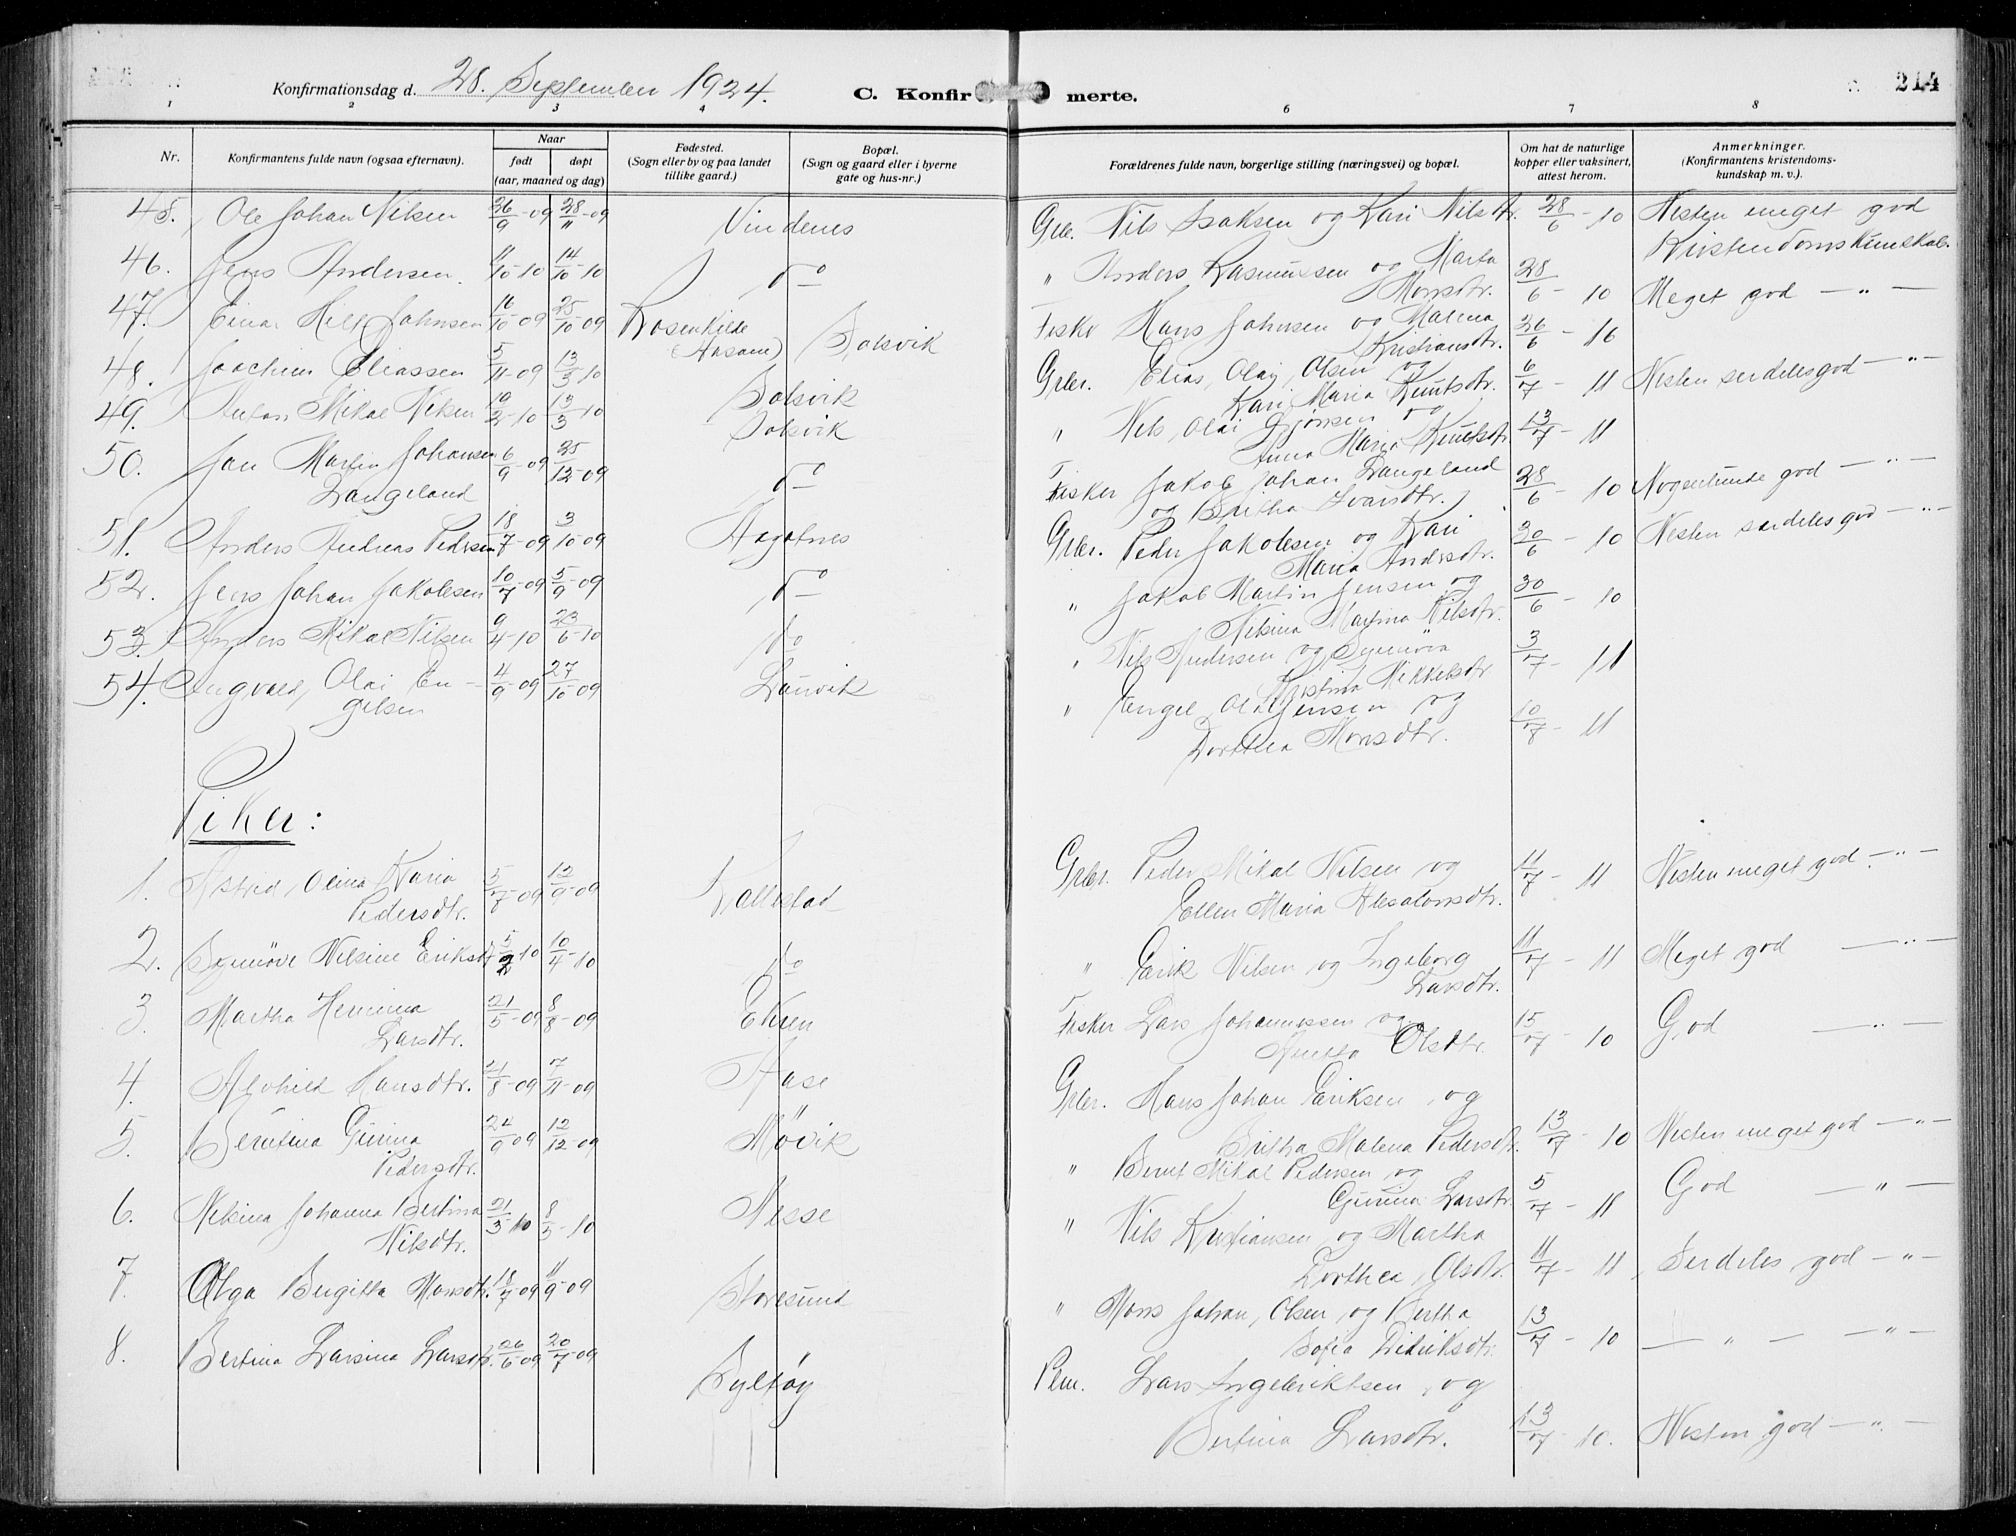 Konfirmationsdag d. 28. September 1924.
C. Konfirmerte.
214
1 2 3 4 6 7 8
Nr.
Konfirmantens fulde navn (ogsaa efternavn).
Naar
født døpt
(aar, maaned og dag)
Fødested.
(Sogn eller by og paa landet
tillike gaard.)
Bopæl.
(Sogn og gaard eller i byerne
gate og hus-nr.)
Forældrenes fulde navn, borgerlige stilling (næringsvei) og bopæl.
Om hat de naturlige
kopper eller vaksinert,
attest herom.
Anmerkninger.
(Konfirmantens kristendoms-
kundskap m. v.).
45. Ole Johan Nilsen 26/9-09 28/11-09 Vindenes Grbr. Nils Isaksen og Kari Nilsdtr. 28/6-10 Nesten meget god
Kristendomskunskab.
46. Jens Andersen 11/10-10 14/10-10 do " Anders Rasmussen og Marta
Monsdtr. 28/6-10 Meget god — " —
47. Einar Johnsen 16/10-09 25/10-09 Rosenkilde
Solsvik Fisker Hans Johnsen og Malena
Kristiansdtr. 26/6-16
48. Joachim Eliassen 5/11-09 13/3-10 Solsvik Grbr. Elias, Olai, Olsen og
Kari Maria Knutsdtr. 6/7-11 Nesten serdeles god — " —
49. Anton Mikal Nilsen 10/2-10 13/3-10 Solsvik " Nils, Olai Gjønsen og
Anna Maria Knutsdtr. 13/7-11
50. Jan Martin Johansen
Langeland 6/9-09 25/12-09 do Fisker Jakob Johan Langeland
og Britha Ivarsdtr. 28/6-10 Nogenlunde god — " —
51. Anders Andreas Pedersen 18/7-09 3/10-09 Aagotnes Grbr. Peder Jakobsen og Kari
Maria Andersdtr. 30/6-10 Nesten særdeles god — " —
52. Jens Johan Jakobsen 10/7-09 5/9-09 do " Jakob Martin Jensen og
Nilsina Martina Nilsdtr. 30/6-10
53. Anders Mikal Nilsen 9/4-10 23/6-10 do " Nils Andersen og Synnöva
Kristina Mikkelsdtr. 3/7-11
54. Ingvald, Olai En-
gelsen 4/9-09 27/10-09 Landvik " Engel Olai Jensen og
Dorthea Monsdtr. 10/7-11
Piker:
1. Astrid, Olina Maria
Pedersdtr. 5/7-09 12/9-09 Kallestad Grbr. Peder Mikal Nilsen og
Ellen Maria Absalonsdtr. 11/7-11 Nesten meget god — " —
2. Synnöve Nilsine Eriksd. 5/2-10 10/4-10 do " Erik Nilsen og Ingeborg
Larsdtr. 11/7-11 Meget god — " —
3. Martha Hermina
Larsdtr. 21/5-09 8/8-09 Eksen Fisker Lars Johannessen og
Anetta Olsdtr. 15/7-10 God — " —
4. Alvhild Hansdtr. 21/8-09 7/11-09 Aase Grbr. Hans Johan Eriksen, og
Britha Malena Pedersdtr. 13/7-10 Nesten meget god — " —
5. Berntina Gurina
Pedersdtr. 24/9-09 12/12-09 Mövik " Bernt Mikal Pedersen og
Gurina Larsdtr. 5/7-11 God — " —
6. Nilsina Johanna Bertina
Nilsdtr. 21/3-10 8/5-10 Nesse " Nils Kristiansen og Martha
Dorthea, Olsdtr. 11/7-11 Serdeles god — " —
7. Olga Birgitta Monsdtr. 18/7-09 11/9-09 Storesund " Mons Johan, Olsen, og Bertha
Sofia Didriksdtr. 13/7-10 — " — — " —
8. Bertina Larsina Larsdtr. 26/6-09 20/7-09 Syltöy Plm. Lars Ingebriktsen, og
Bertina Larsdtr. 13/7-10. Nesten god — " —